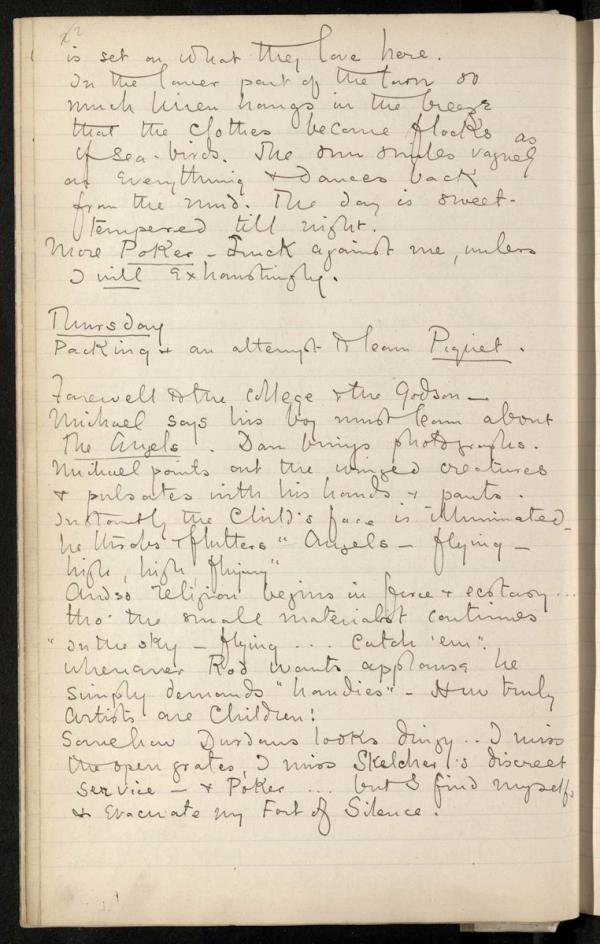 is set on what they love here.
In the lower part of the town so
much linen hangs in the breeze
that the clothes become flocks
of sea-birds. The sun smiles vaguely as
on everything & dances back
from the mud. The day is sweet-
tempered till night.
More Poker – Luck against me, unless
I will exhaustingly.
Thursday
Packing & an attempt to learn Piquet.
Farewell to the College & the Godson –
Michael says his boy must learn about
The Angels. Dan brings photographs.
Michael points out the winged creatures
& pulsates with his hands & pants.
Instantly the Child's face is illuminated –
he throbs & flutters "Angels – flying –
high, high flying"
And so religion begins in force & ecstasy...
tho' the small materialist continues
"In the sky – flying... Catch 'em".
Whenever Rod wants applause he
simply demands "handies" – How truly
artists are Children!
Somehow Durdans looks dingy.. I miss
the open grates, I miss Skelcher's discreet
service – & Poker... but I find myself,
& evacuate my Fort of Silence.